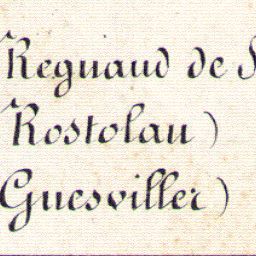 Regnaud de S
Rostolan)
Guesviller)